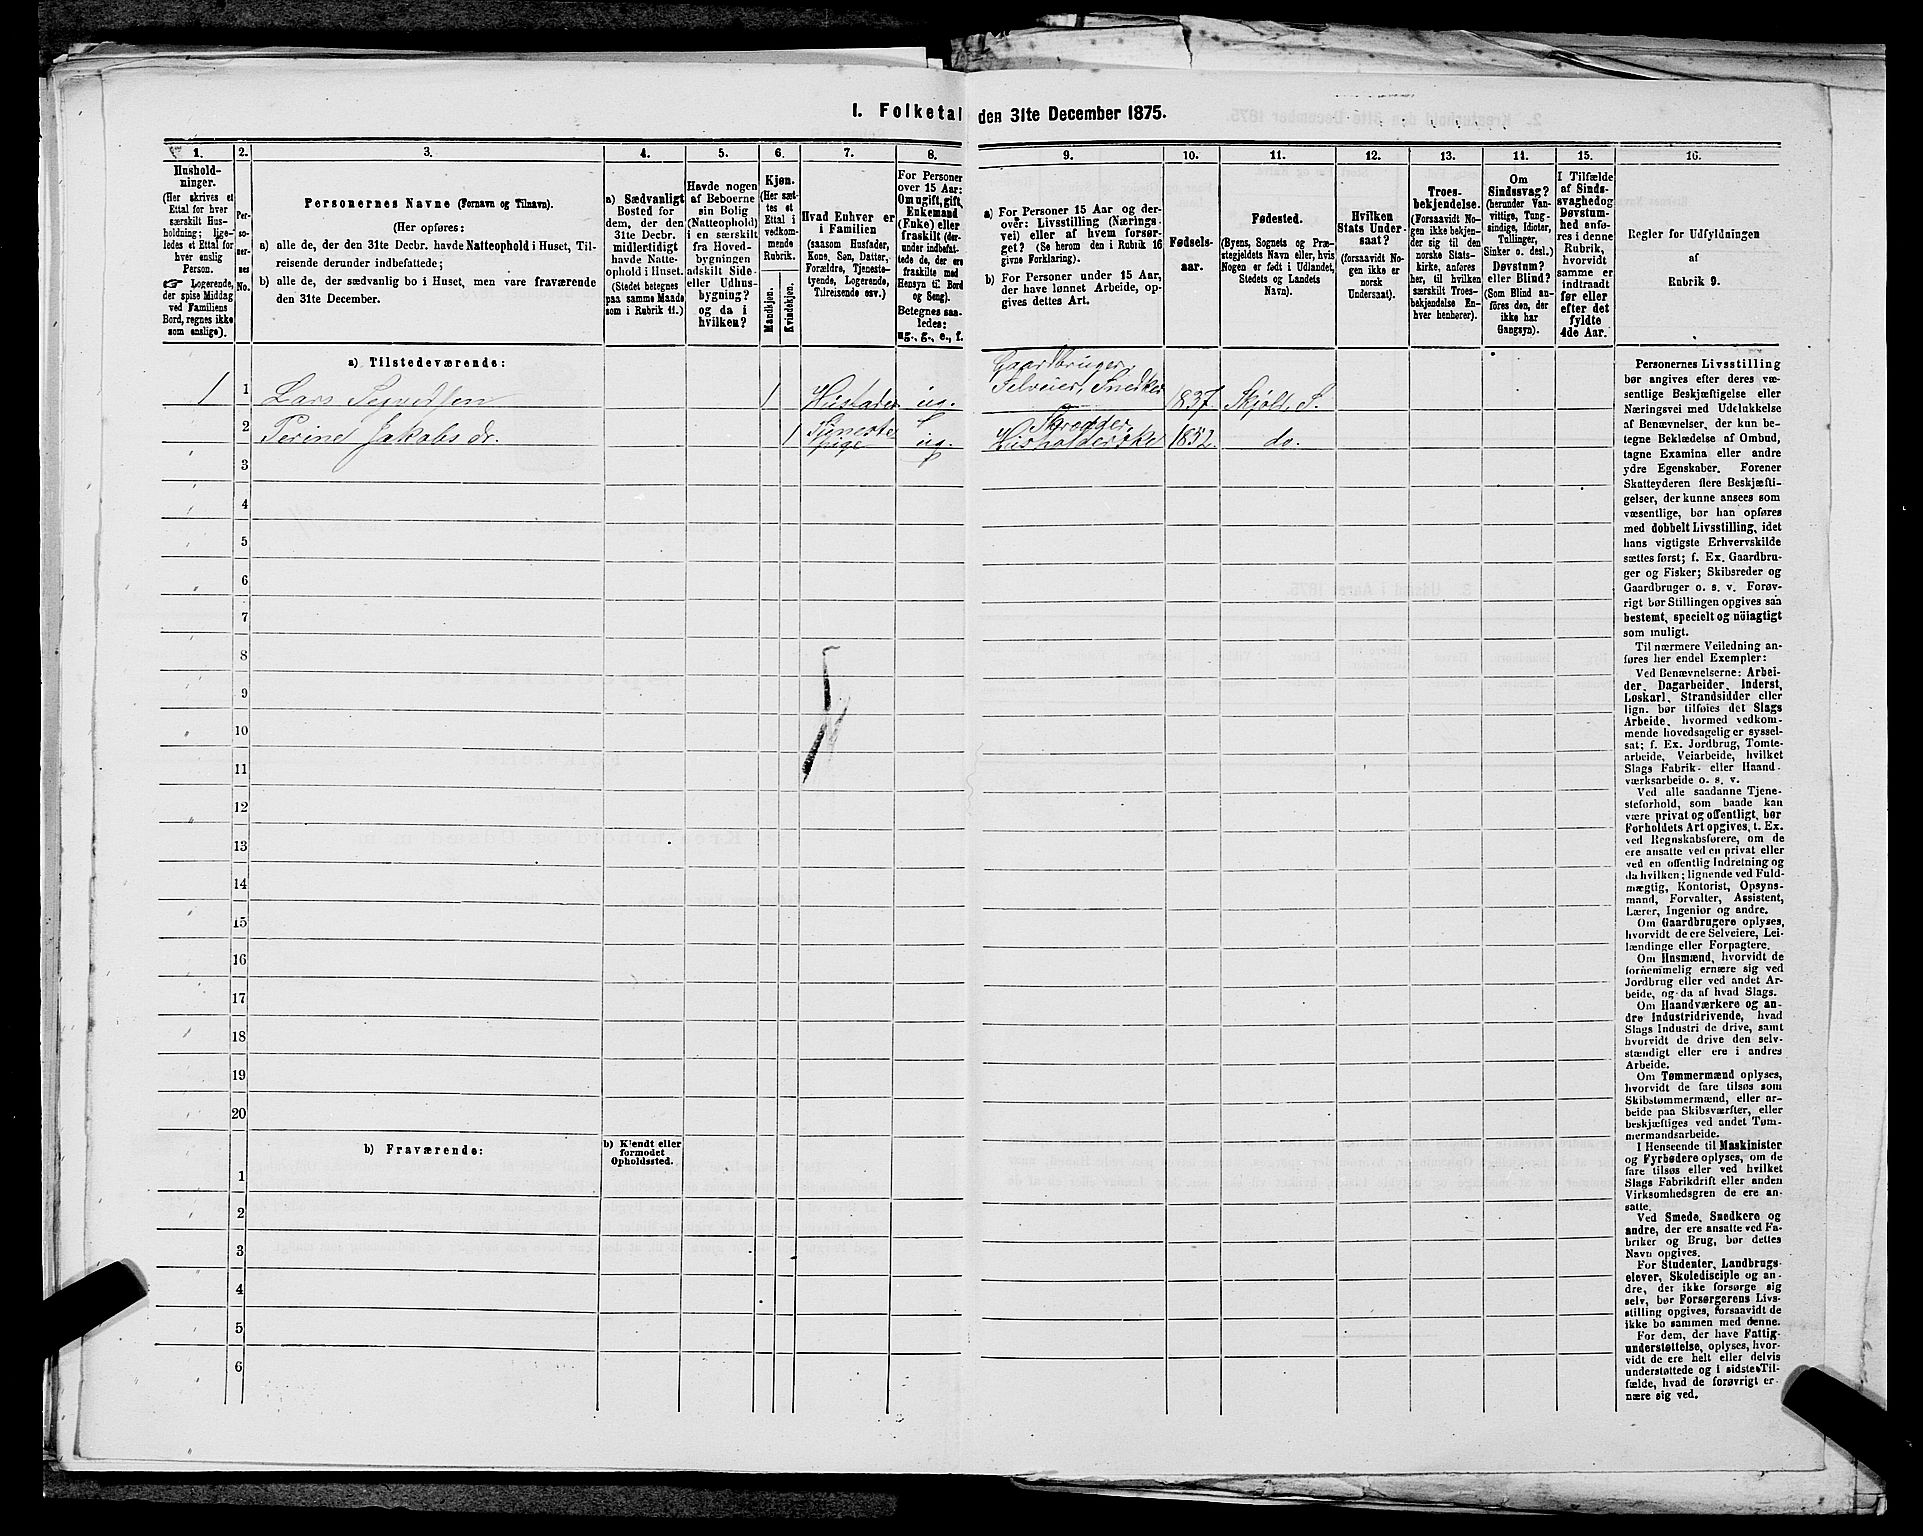 I. Folketal den 31te December 1875.
1.
2.
3.
4.
5.
6.
7.
8.
9.
10.
11.
12.
13.
14.
15.
16.
Hushold-
ninger.
(Her skrives et
Ettal for hver
særskilt Hus-
holdning; lige-
ledes et Ettal for
hver enslig
Person.
☞ Logerende,
der spise Middag
ved Familiens
Bord, regnes ikke
som enslige).
Per-
so-
ner-
nes
No.
Personernes Navne (Fornavn og Tilnavn).
(Her opføres:
a) alle de, der den 31te Decbr. havde Natteophold i Huset, Til-
reisende derunder indbefattede;
b) alle de, der sædvanlig bo i Huset, men vare fraværende
den 31te December.
a) Sædvanligt
Bosted for
dem, der den
31te Decbr.
midlertidigt
havde Natte-
ophold i Huset.
(Stedet betegnes
paa samme Maade
som i Rubrik 11.)
Havde nogen
af Beboerne
sin Bolig
(Natteophold)
i en særskilt
fra Hoved-
bygningen
adskilt Side-
eller Udhus-
bygning?
og da i
hvilken?
Kjøn.
(Her sæt-
tes et
Ettal i
vedkom-
mende
Rubrik.
Mandkjøn.
Kvindekjøn.
Hvad Enhver er
i Familien
(saasom Husfader,
Kone, Søn, Datter,
Forældre, Tjeneste-
tyende, Logerende,
Tilreisende osv.)
For Personer
over 15 Aar:
Om ugift, gift,
Enkemand
(Enke) eller
fraskilt (der-
under indbefat-
tede de, der ere
fraskilte med
Hensyn til Bord
og Seng).
Betegnes saa-
ledes:
ug., g., e., f.
a) For Personer 15 Aar og der-
over: Livsstilling (Nærings-
vei) eller af hvem forsør-
get? (Se herom den i Rubrik 16
givne Forklaring).
b) For Personer under 15 Aar,
der have lønnet Arbeide, op-
gives dettes Art.
Fødsels-
aar.
Fødested.
(Byens, Sognets og Præ-
stegjeldets Navn eller, hvis
Nogen er født i Udlandet,
Stedets og Landets
Navn).
Hvilken
Stats Under-
saat?
(forsaavidt No-
gen ikke er
norsk
Undersaat).
Troes-
bekjendelse.
(Forsaavidt No-
gen ikke bekjen-
der sig til den
norske Stats-
kirke, anføres
her, til hvilken
særskilt Troes-
bekjendelse En-
hver henhører).
Om
Sindssvag?
(herunder Van-
vittige, Tung-
sindige, Idioter,
Tullinger,
Sinker o. desl.)
Døvstum?
eller Blind?
(Som Blind an-
føres den, der
ikke har
Gangsyn).
I Tilfælde
af Sinds-
svaghed og
Døvstum-
hed anfø-
res i denne
Rubrik,
hvorvidt
samme er
indtraadt
før eller
efter det
fyldte
4de Aar.
Regler for Udfyldningen
af
Rubrik 9.
a) Tilstedeværende:
1 1 Lars Sjovertsen 1 Husfader ug. Gaardbruger,
Selveier, Snedker 1837 Skjold, S.
2 Perine Jakobs dr. 1 Tjeneste
pige ug. Skrædder,
Husholderske 1852 do.
3
4
5
6
7
8
9
10
11
12
13
14
15
16
17
18
19
20
b) Fraværende:
b) Kjendt eller
formodet
Opholdssted.
1
2
3
4
5
6
Personernes Livsstilling
bør angives efter deres væ-
sentlige Beskjæftigelse eller
Næringsvei med Udelukkelse
af Benævnelser, der kun be-
tegne Beklædelse af Ombud,
tagne Examina eller andre
ydre Egenskaber. Forener
Skatteyderen flere Beskjæfti-
gelser, der kunne ansees som
væsentlige, bør han opføres
med dobbelt Livsstilling, idet
hans vigtigste Erhvervskilde
sættes først; f. Ex. Gaardbru-
ger og Fisker; Skibsreder og
Gaardbruger o. s. v. Forøv-
rigt bør Stillingen opgives saa
bestemt, specielt og nöiagtigt
som muligt.
Til nærmere Veiledning an-
føres her endel Exempler:
Ved Benævnelserne: Arbei-
der, Dagarbeider, Inderst,
Løskarl, Strandsidder eller
lign. bør tilføies det Slags
Arbeide, hvormed vedkom-
mende hovedsagelig er syssel-
sat; f. Ex. Jordbrug, Tomte-
arbeide, Veiarbeide, hvilket
Slags Fabrik- eller Haand-
værksarbeide o. s. v.
Ved alle saadanne Tjene-
steforhold, som baade kan
være privat og offentligt, bør
Forholdets Art opgives, t. Ex.
ved Regnskabsførere, om de
ere ansatte ved en privat eller
ved en offentlig Indretning og
da hvilken; lignende ved Fuld-
mægtig, Kontorist, Opsyns-
mand, Forvalter, Assistent,
Lærer, Ingeniør og andre.
Om Gaardbrugere oplyses,
hvorvidt de ere Selveiere, Lei-
lændinge eller Forpagtere.
Om Husmænd, hvorvidt de
fornemmelig ernære sig ved
Jordbrug eller ved andet Ar-
beide, og da af hvad Slags.
Om Haandværkere og an-
dre Industridrivende, hvad
Slags Industri de drive, samt
hvorvidt de drive den selv-
stændigt eller ere i andres
Arbeide.
Om Tømmermænd oplyses,
hvorvidt de fare tilsøs som
Skibstømmermænd, eller ar-
beide paa Skibsværfter, eller
beskjæftiges ved andet Tøm-
mermandsarbeide.
I Henseende til Maskinister
og Fyrbødere oplyses, om de
fare tilsøs eller ved hvilket
Slags Fabrikdrift eller anden
Virksomhedsgren de ere an-
satte.
Ved Smede, Snedkere og
andre, der ere ansatte ved Fa-
briker og Brug, bør dettes
Navn opgives.
For Studenter, Landbrugs-
elever, Skoledisciple og an-
dre, der ikke forsørge sig
selv, bør Forsørgerens Livs-
stilling opgives, forsaavidt de
ikke bo sammen med denne.
For dem, der have Fattig-
understøttelse, oplyses, hvor-
vidt de ere helt eller delvis
understøttede og i sidste Til-
fælde, hvad de forøvrigt er-
nære sig ved.